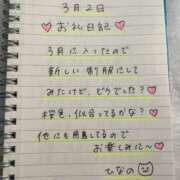 3月2日
♡お礼日記♡
3月に入ったので
新しい制服にして
みたけど、どうでした？♡
桜色、似合ってるかな？
他にも用意してるので
お楽しみに〜♡
ひなの